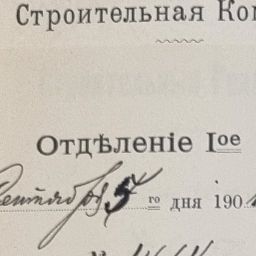 Строительная Ко
Отдѣленіе Iое
Сентября 5 го дня 190